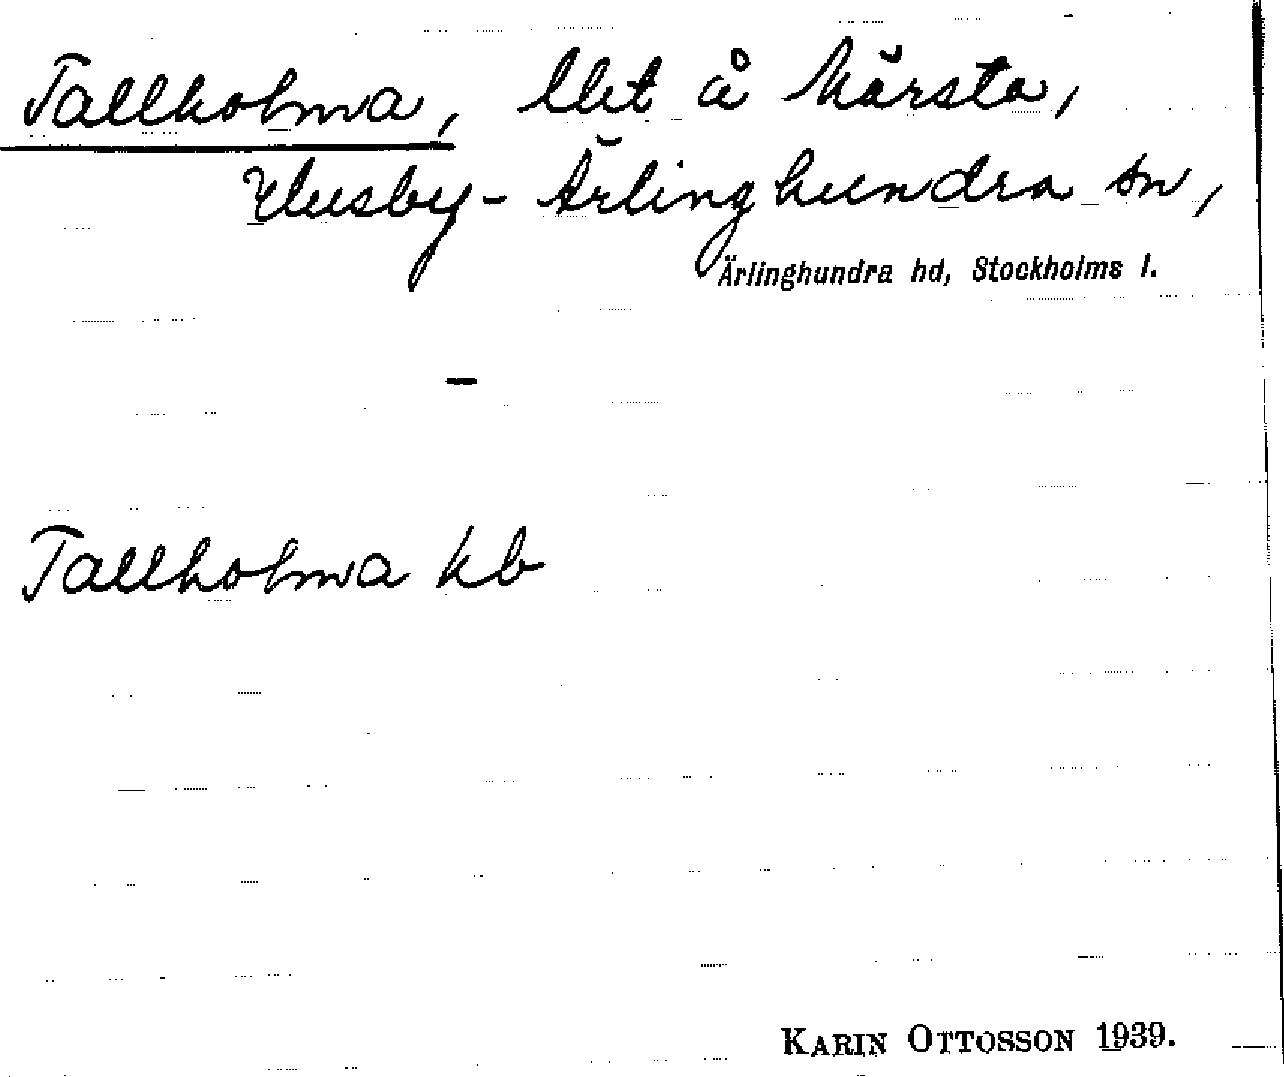 Tallholma, llet å Märsta,
Husby-Ärlinghundra sn,
Ärlinghundra hd, Stockholms l.
-
Tallholma kb
KARIN OTTOSSON 1939.